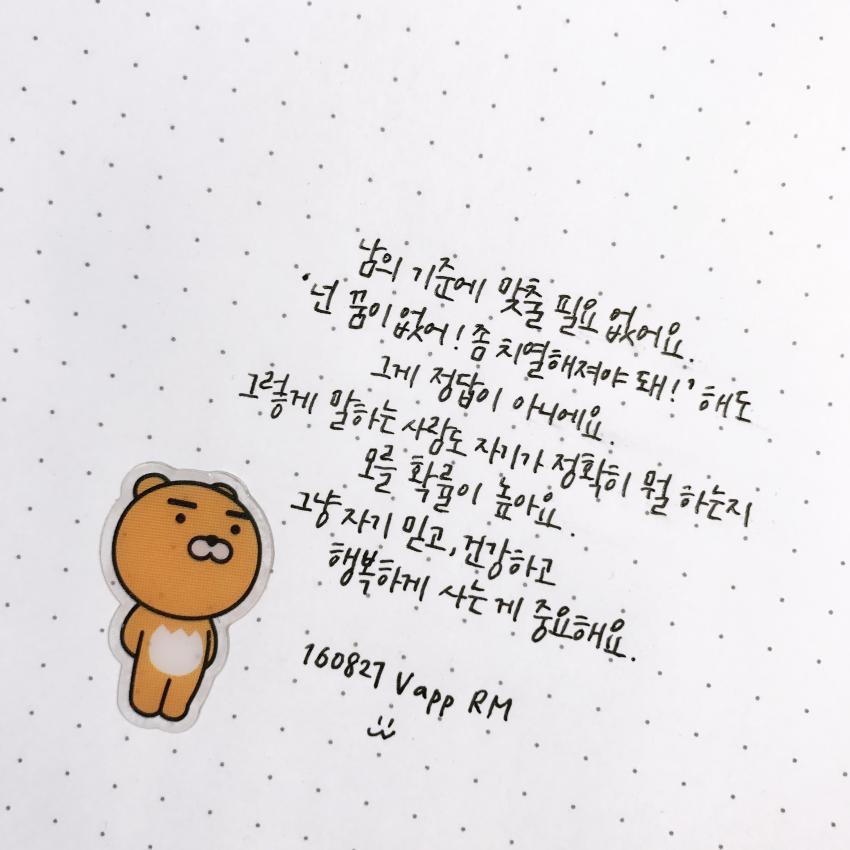 남의 기준에 맞출 필요 없어요.
'넌 꿈이 없어! 좀 치열해져야 돼!' 해도
그게 정답이 아니에요.
그렇게 말하는 사람도 자기가 정확히 뭘 하는지
모를 확률이 높아요.
그냥 자기 믿고, 건강하고
행복하게 사는 게 중요해요.
160827 Vapp RM